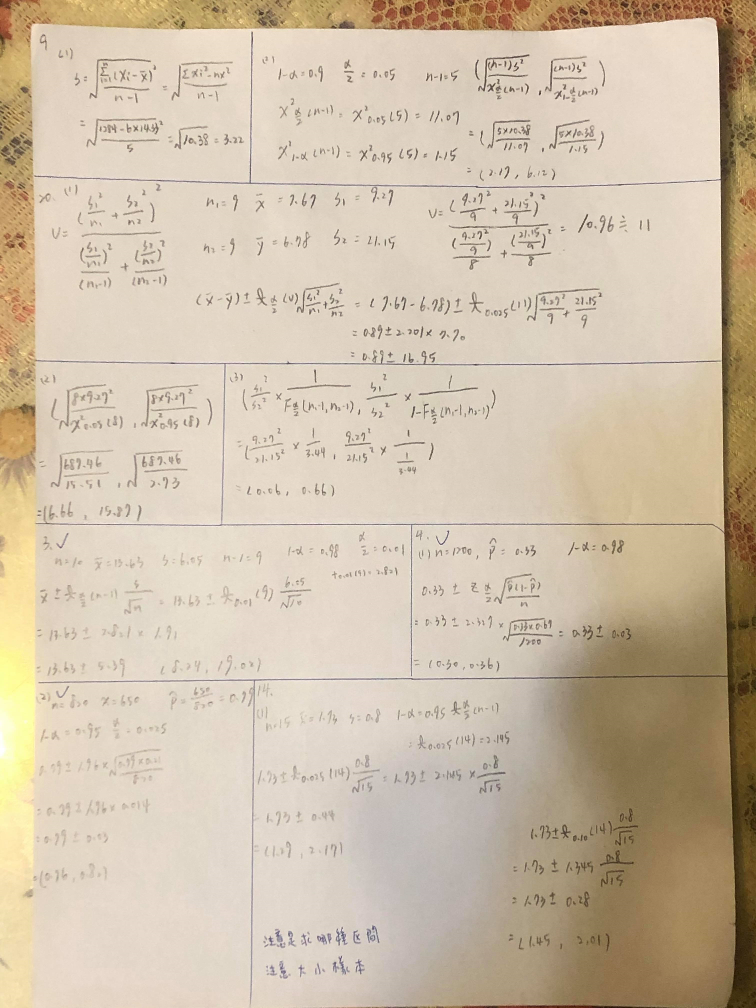 9
(1)
S = √(Σ(xi - x̄)²/(n-1)) = √((Σxi² - nx̄²)/(n-1))
= √((1284 - 6×14.33²)/5) = √10.38 = 3.22
(2)
1-α = 0.9 α/2 = 0.05 n-1 = 5 (√((n-1)s²/χ²α/2(n-1)), √((n-1)s²/χ²1-α/2(n-1)))
χ²α/2(n-1) = χ²0.05(5) = 11.07 = (√(5×10.38/11.07), √(5×10.38/1.15))
χ²1-α(n-1) = χ²0.95(5) = 1.15
= (2.17, 6.12)
20. (1)
V = (s1²/n1 + s2²/n2)² / ((s1²/n1)²/(n1-1) + (s2²/n2)²/(n2-1))
n1 = 9 x̄ = 7.67 s1 = 9.27
n2 = 9 ȳ = 6.78 s2 = 21.15
V = (9.27²/9 + 21.15²/9)² / ((9.27²/9)²/8 + (21.15²/9)²/8) = 10.96 ≒ 11
(x̄-ȳ) ± t α/2 (V) √(s1²/n1 + s2²/n2) = (7.67-6.78) ± t 0.025 (11) √(9.27²/9 + 21.15²/9)
= 0.89 ± 2.201 × 7.70
= 0.89 ± 16.95
(2)
(√(8×9.27²/χ²0.05(8)), √(8×9.27²/χ²0.95(8)))
= √(687.46/15.51), √(687.46/2.73)
= (6.66, 15.87)
(3)
(s1²/s2² × 1/Fα/2(n1-1, n2-1), s1²/s2² × 1/1-Fα/2(n1-1, n2-1))
= (9.27²/21.15² × 1/3.44, 9.27²/21.15² × 1/(1/3.44))
= (0.06, 0.66)
3. ✓
n = 10 x̄ = 13.63 s = 6.05 n-1 = 9 1-α = 0.98 α/2 = 0.01
t0.01(9) = 2.821
x̄ ± t α/2 (n-1) s/√n = 13.63 ± t 0.01 (9) 6.05/√10
= 13.63 ± 2.821 × 1.91
= 13.63 ± 5.39 (8.24, 19.02)
4. ✓
(1) n = 1200, p̂ = 0.33 1-α = 0.98
0.33 ± Z α/2 √(p̂(1-p̂)/n)
= 0.33 ± 2.327 × √(0.33×0.67/1200) = 0.33 ± 0.03
= (0.30, 0.36)
(2) ✓ n = 820 x = 650 p̂ = 650/820 = 0.79
1-α = 0.95 α/2 = 0.025
0.79 ± 1.96 × √(0.79×0.21/820)
= 0.79 ± 1.96 × 0.014
= 0.79 ± 0.03
= (0.76, 0.82)
14.
(1)
n = 15 x̄ = 1.73 s = 0.8 1-α = 0.95 t α/2 (n-1)
= t 0.025 (14) = 2.145
1.73 ± t 0.025 (14) 0.8/√15 = 1.73 ± 2.145 × 0.8/√15
= 1.73 ± 0.44
= (1.29, 2.17)
1.73 ± t 0.10 (14) 0.8/√15
= 1.73 ± 1.345 0.8/√15
= 1.73 ± 0.28
= (1.45, 2.01)
注意是求哪種區間
注意大小樣本